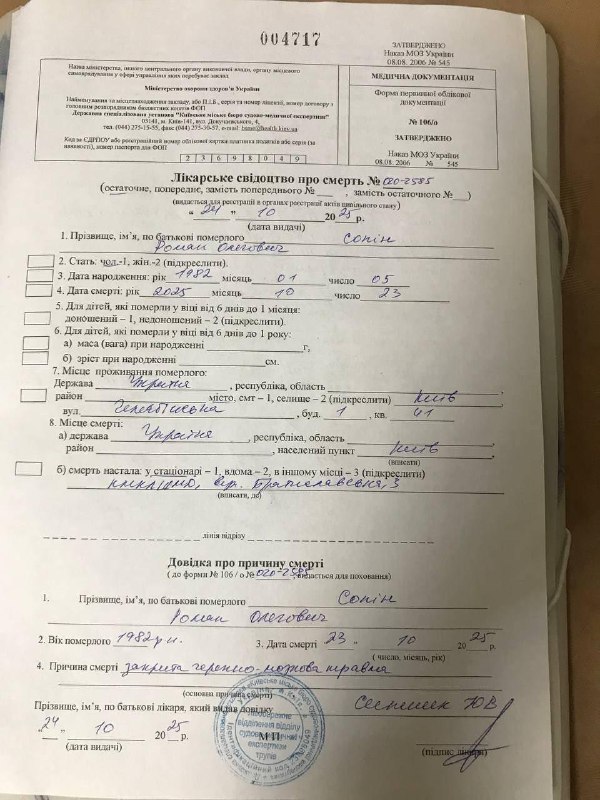 004717
ЗАТВЕРДЖЕНО
Наказ МОЗ України
08.08. 2006 № 545
Назва міністерства, іншого центрального органу виконавчої влади, органу місцевого
самоврядування у сфері управління яких перебуває заклад
Міністерство охорони здоров'я України
Найменування та місцезнаходження закладу, або П.І.Б., серія та номер ліцензії, номер договору з
головним розпорядником бюджетних коштів ФОП
Державна спеціалізована установа "Київське міське бюро судово-медичної експертизи"
03141, м. Київ-141, вул. Докучаєвська, 4,
тел. (044) 275-15-55, факс (044) 275-30-57, e-mail
Код за ЄДРПОУ або реєстраційний номер облікової картки платника податків або серія (за
наявності), номер паспорта для ФОП
2 3 6 9 8 0 4 9
МЕДИЧНА ДОКУМЕНТАЦІЯ
Форма первинної облікової
документації
№ 106/о
ЗАТВЕРДЖЕНО
Наказ МОЗ України
08.08. 2006 № 545
Лікарське свідоцтво про смерть № 020-2585
(остаточне, попереднє, замість попереднього № ___ , замість остаточного № ___)
(видається для реєстрації в органах реєстрації актів цивільного стану)
" 24 " 10 2025 р.
(дата видачі)
1. Прізвище, ім'я, по батькові померлого Сопін
Роман Олегович
2. Стать: чол.-1, жін.-2 (підкреслити).
3. Дата народження: рік 1982 місяць 01 число 05
4. Дата смерті: рік 2025 місяць 10 число 23
5. Для дітей, які померли у віці від 6 днів до 1 місяця:
доношений – 1, недоношений – 2 (підкреслити).
6. Для дітей, які померли у віці від 6 днів до 1 року:
а) маса (вага) при народженні ___ г,
б) зріст при народженні ___ см.
7. Місце проживання померлого:
Держава Україна , республіка, область
район ___ місто, смт – 1, селище – 2 (підкреслити) Київ
вул. , буд. 1 , кв. 41
8. Місце смерті:
а) держава Україна , республіка, область
район ___ , населений пункт Київ
(вписати)
б) смерть настала: у стаціонарі – 1, вдома – 2, в іншому місці – 3 (підкреслити)
вул. Братиславська, 3
(вписати, де)
лінія відрізу
Довідка про причину смерті
( до форми № 106 / о № 020-2585, видається для поховання)
1. Прізвище, ім'я, по батькові померлого Сопін
Роман Олегович
2. Вік померлого 1982 р.н. 3. Дата смерті 23 10 2025 р.
( число, місяць, рік)
4. Причина смерті закрита черепно-мозкова травма
(основна причина смерті)
Прізвище, ім'я, по батькові лікаря, який видав довідку
"24" 10 2025 р.
М П
(дата видачі)
(підпис лікаря)